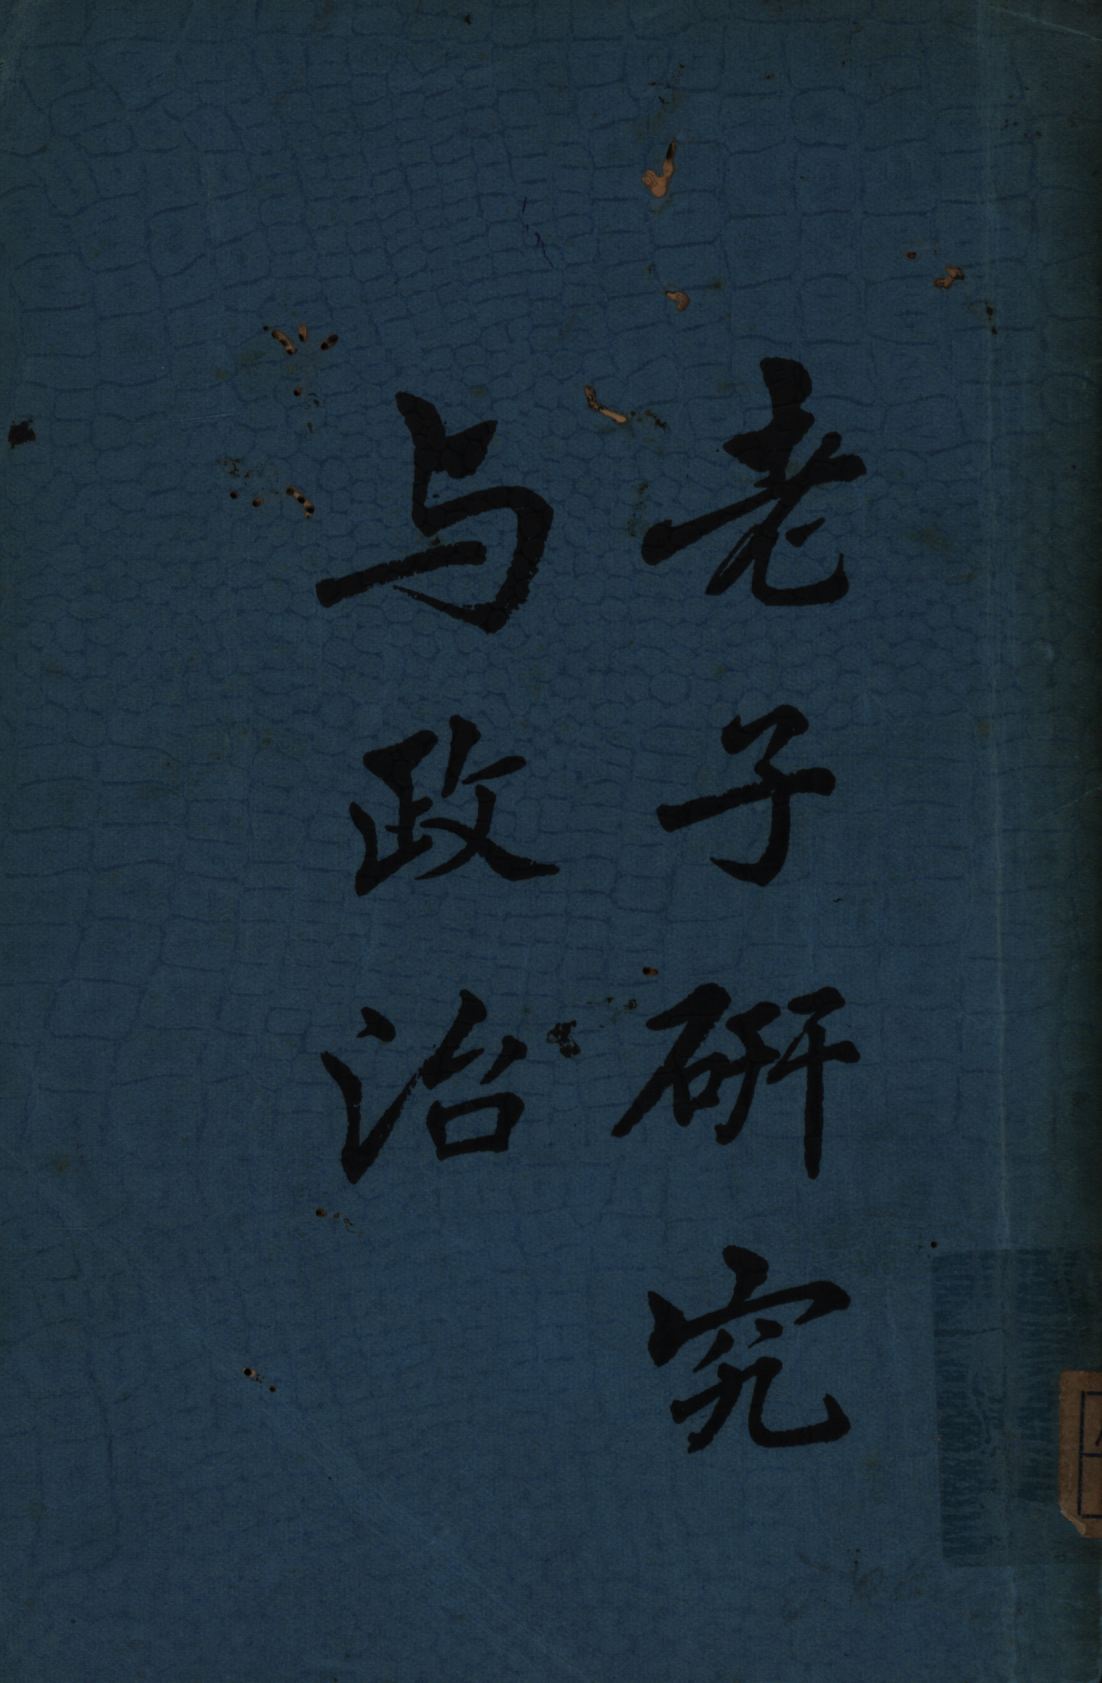 老子研究
与政治